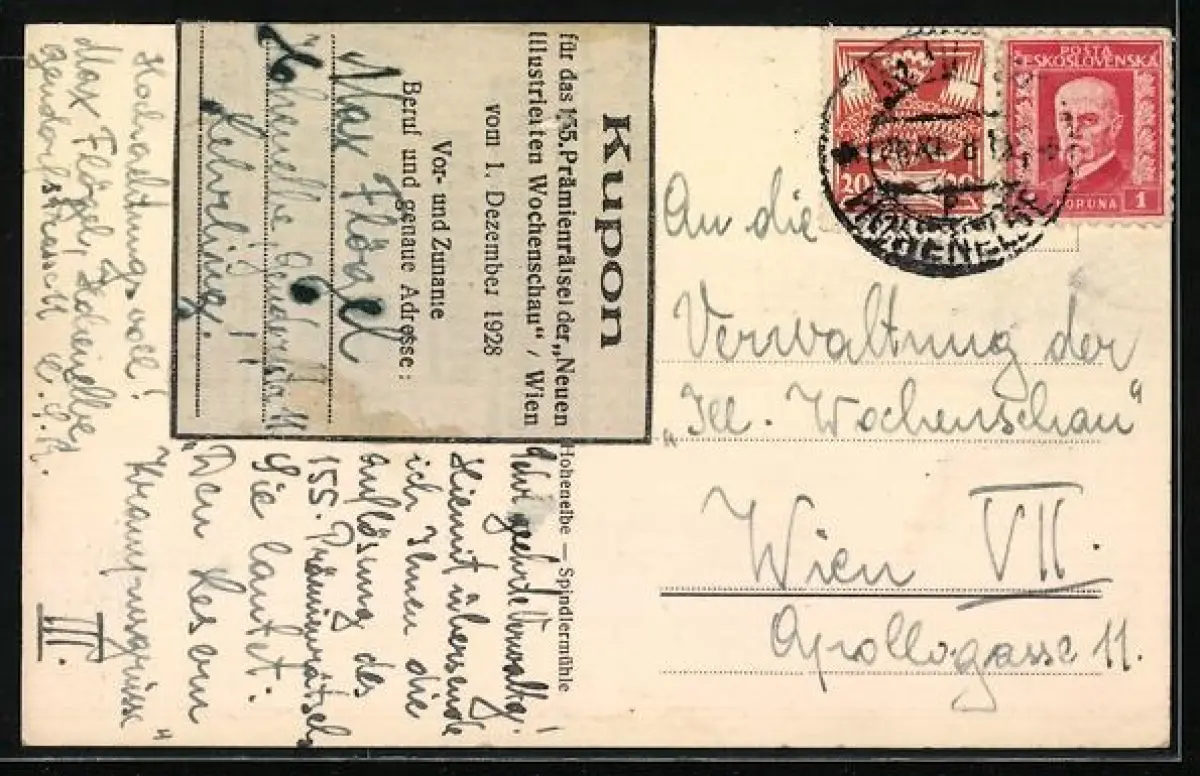 Kupon
für das 155. Prämienrätsel der „Neuen
Illustrierten Wochenschau“ / Wien
vom 1. Dezember 1928
Vor- und Zuname
Beruf und genaue Adresse:
Max Flögel
Hohenelbe,
Lehrling.
Hohenelbe – Spindlermühle
Sehr geehrte Verwaltg.!
Hiermit übersende
ich Ihnen die
Auflösung des
155. Prämienrätsel
Sie lautet:
„Den Lesern
III.
Hochachtungsvoll!
Max Flögel, Hohenelbe
Č.S.R.
POSTA
ČESKOSLOVENSKÁ
KORUNA 1
20 20
HOHENELBE
An die
Verwaltung der
„Ill. Wochenschau“
Wien VII.
Apollogasse 11.